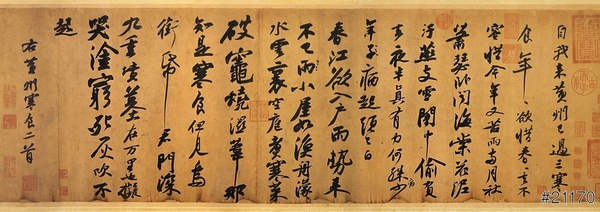 自我來黃州已過三寒
食年年欲惜春春去不
容惜今年又苦雨兩月秋
蕭瑟臥聞海棠花泥
汙燕支雪闇中偷負
去夜半真有力何殊病少
年子病起頭已白
春江欲入戶雨勢來
不已雨小屋如漁舟濛濛
水雲裏空庖煮寒菜
破竈燒濕葦那
知是寒食但見烏
銜帋君門深
九重墳墓在万里也擬
哭塗窮死灰吹不
起
右黃州寒食二首
#21170